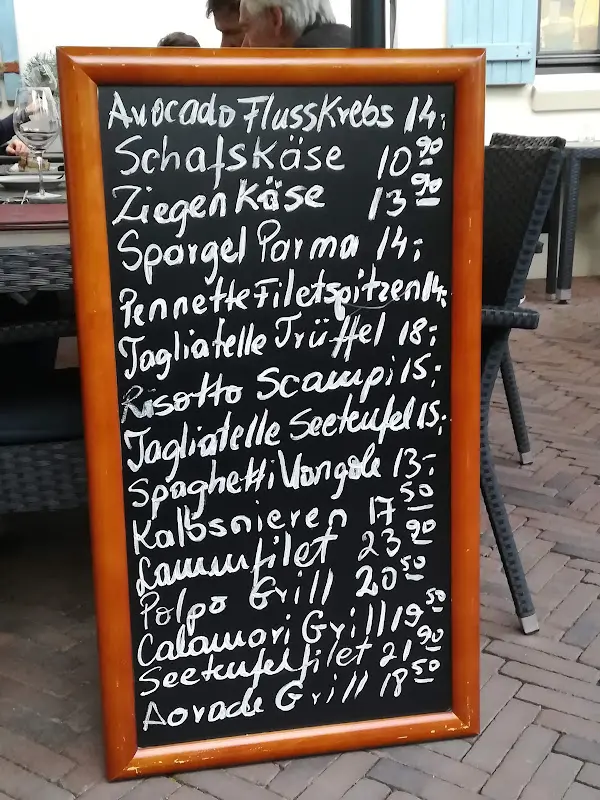 Avocado Flusskrebs 14,-
Schafskäse 10 90
Ziegenkäse 13 90
Spargel Parma 14,-
Pennette Filetspitzen 14,-
Tagliatelle Trüffel 18,-
Risotto Scampi 15,-
Tagliatelle Seeteufel 15,-
Spaghetti Vongole 13,-
Kalbsnieren 17 50
Lammfilet 23 90
Polpo Grill 20 50
Calamari Grill 19 50
Seeteufelfilet 21 90
Dorade Grill 18 50